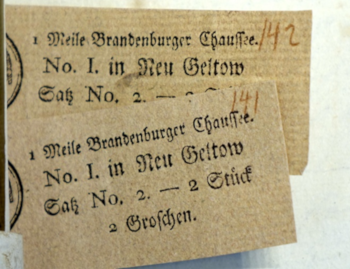 1 Meile Brandenburger Chaussee. 142
No. I. in Neu Geltow
Satz No. 2. —
141
1 Meile Brandenburger Chaussee.
No. I. in Neu Geltow
Satz No. 2. — 2 Stück
2 Groschen.